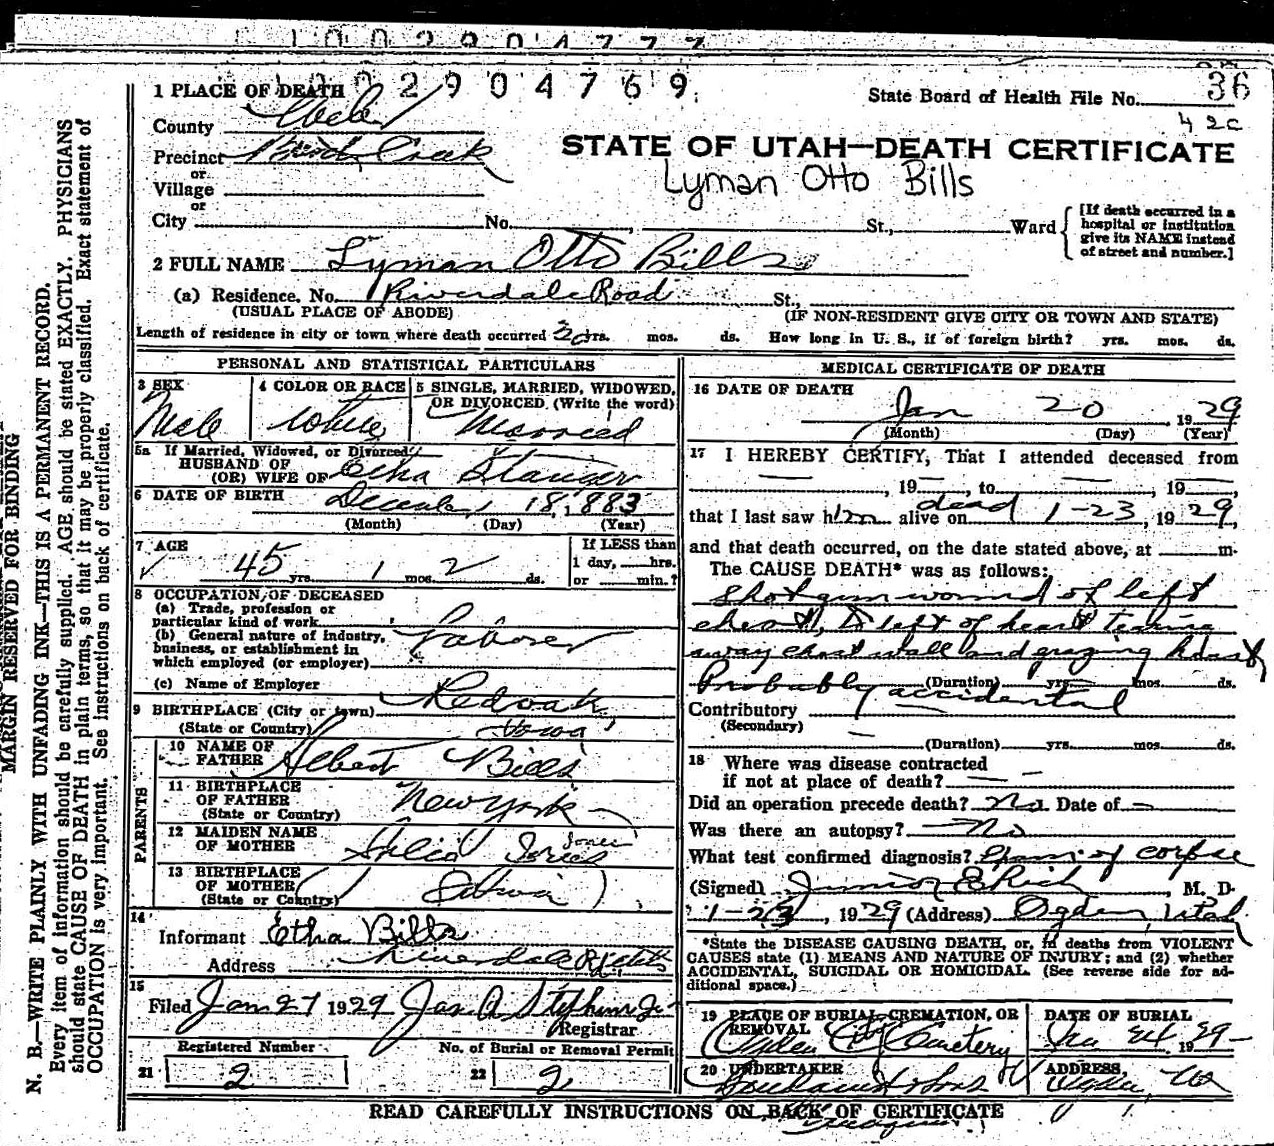 1002904777
1002904769
1 PLACE OF DEATH
State Board of Health File No. 36
42c
County Weber
Precinct Creek
or
Village
or
City No. St., Ward
[If death occurred in a
hospital or institution
give its NAME instead
of street and number.]
STATE OF UTAH—DEATH CERTIFICATE
Lyman Otto Bills
2 FULL NAME Lyman Otto Bills
(a) Residence. No. Riverdale Road St.,
(USUAL PLACE OF ABODE) (IF NON-RESIDENT GIVE CITY OR TOWN AND STATE)
Length of residence in city or town where death occurred yrs. mos. ds. How long in U. S., if of foreign birth? yrs. mos. ds.
PERSONAL AND STATISTICAL PARTICULARS
3 SEX
Male
4 COLOR OR RACE
White
5 SINGLE, MARRIED, WIDOWED,
OR DIVORCED (Write the word)
Married
5a If Married, Widowed, or Divorced
HUSBAND OF
(OR) WIFE OF Etha Stanger
6 DATE OF BIRTH December 18, 1883
(Month) (Day) (Year)
7 AGE
45 yrs. 1 mos. 2 ds.
If LESS than
1 day, hrs.
or min.?
8 OCCUPATION OF DECEASED
(a) Trade, profession or
particular kind of work
(b) General nature of Industry,
business, or establishment in
which employed (or employer)
Laborer
(c) Name of Employer
9 BIRTHPLACE (City or town) Redoak
(State or Country) Iowa
PARENTS
10 NAME OF
FATHER Albert Bills
11 BIRTHPLACE
OF FATHER
(State or Country) New York
12 MAIDEN NAME
OF MOTHER Jones
13 BIRTHPLACE
OF MOTHER
(State or Country)
14
Informant Etha Bills
Address Riverdale Rd
15
Filed Jan 27 1929 Jas A Stephens Jr
Registrar
Registered Number
21 2
No. of Burial or Removal Permit
22 2
MEDICAL CERTIFICATE OF DEATH
16 DATE OF DEATH
Jan 20 1929
(Month) (Day) (Year)
17 I HEREBY CERTIFY, That I attended deceased from
— , 19 — , to — — , 19 —
that I last saw him alive on dead 1-23, 1929,
and that death occurred, on the date stated above, at m.
The CAUSE DEATH* was as follows:
Shot gun wound of left
chest, to left of heart tearing
away chest wall and grazing heart
(Duration) yrs. mos. ds.
Probably accidental
Contributory
(Secondary)
(Duration) yrs. mos. ds.
18 Where was disease contracted
if not at place of death? — —
Did an operation precede death? No. Date of —
Was there an autopsy? No
What test confirmed diagnosis? Exam of corpse
(Signed) Junior E Rich, M. D.
1-23, 1929 (Address) Ogden Utah
*State the DISEASE CAUSING DEATH, or, in deaths from VIOLENT
CAUSES state (1) MEANS AND NATURE OF INJURY; and (2) whether
ACCIDENTAL, SUICIDAL OR HOMICIDAL. (See reverse side for ad-
ditional space.)
19 PLACE OF BURIAL, CREMATION, OR
REMOVAL
Ogden City Cemetery
DATE OF BURIAL
Jan 1929
20 UNDERTAKER
& Sons
ADDRESS
Ogden, Ut
READ CAREFULLY INSTRUCTIONS ON BACK OF CERTIFICATE
MARGIN RESERVED FOR BINDING
N. B.—WRITE PLAINLY WITH UNFADING INK—THIS IS A PERMANENT RECORD.
Every item of information should be carefully supplied. AGE should be stated EXACTLY. PHYSICIANS
should state CAUSE OF DEATH in plain terms, so that it may be properly classified. Exact statement of
OCCUPATION is very important. See instructions on back of certificate.